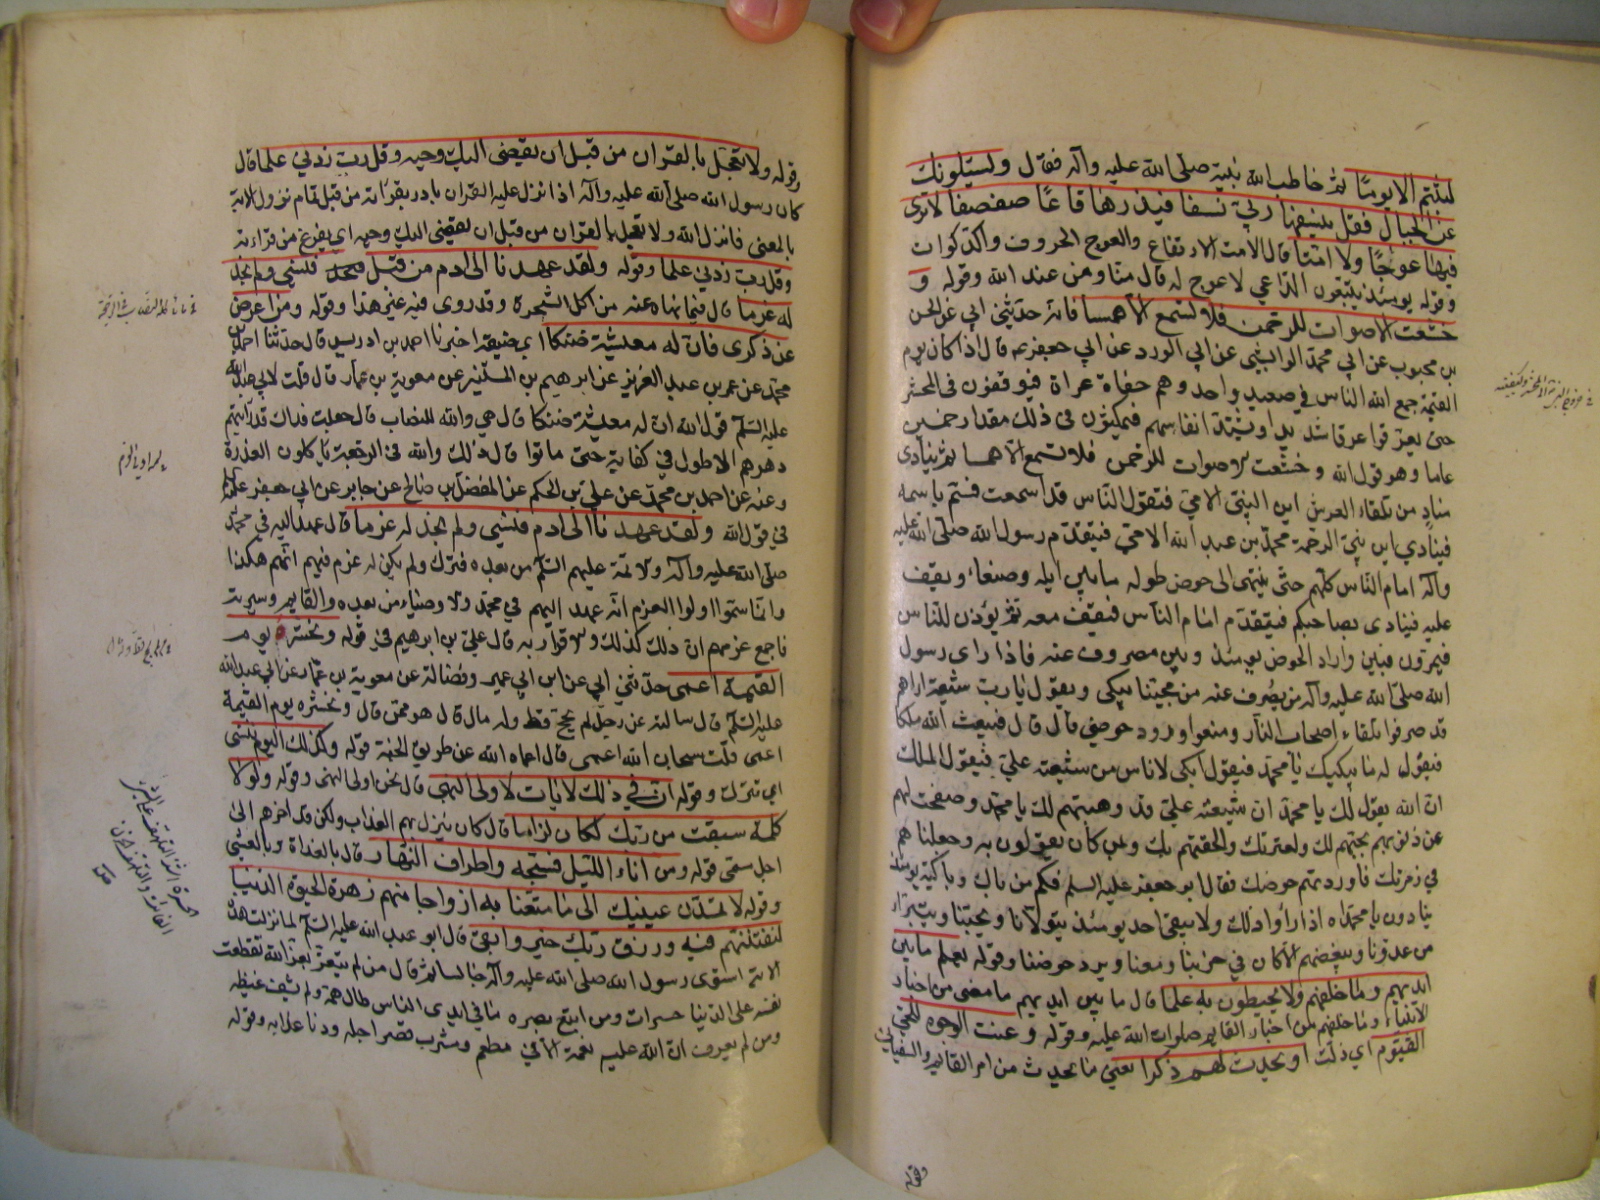 لبثتم الا يوما ثم خاطب الله نبيه صلى الله عليه وآله فقال ويسئلونك
عن الجبال فقل ينسفها ربي نسفا فيذرها قاعا صفصفا لا ترى
فيها عوجا ولا امتا قال الامت الارتفاع والعوج الحزون والذكوات
وقوله يومئذ يتبعون الداعي لا عوج له قال مناد من عند الله وقوله و
خشعت الاصوات للرحمن فلا تسمع الا همسا فانه حدثني ابي عن الحسن
بن محبوب عن ابي محمد الوابشي عن ابي الورد عن ابي جعفر ع قال اذا كان يوم
القيمة جمع الله الناس في صعيد واحد وهم حفاة عراة فيوقفون في المحشر
حتى يعرقوا عرقا شديدا وتشتد انفاسهم فيمكثون في ذلك مقدار خمسين
عاما وهو قول الله وخشعت الاصوات للرحمن فلا تسمع الا همسا ثم ينادي
مناد من تلقاء العرش اين النبي الامي فتقول الناس قد اسمعت فسم باسمه
فينادي اين نبي الرحمة محمد بن عبد الله الامي فيتقدم رسول الله صلى الله عليه
وآله امام الناس كلهم حتى ينتهى الى حوض طوله ما بين ايلة وصنعاء ويقف
عليه فينادى بصاحبكم فيتقدم امام الناس فيقف معه ثم يؤذن للناس
فيمرون فبين وارد الحوض يومئذ وبين مصروف عنه فاذا راى رسول
الله صلى الله عليه وآله من يصرف عنه من محبينا يبكي ويقول يا رب شيعة اراهم
قد صرفوا تلقاء اصحاب النار ومنعوا ورود حوضي قال قال فيبعث الله ملكا
فيقول له ما يبكيك يا محمد فيقول ابكى لاناس من شيعة علي فيقول الملك
ان الله يقول لك يا محمد ان شيعة علي قد وهبتهم لك يا محمد وصفحت لهم
عن ذنوبهم بحبهم لك ولعترتك والحقتهم بك وبمن كان يقولون به وجعلناهم
في زمرتك فاوردتهم حوضك فقال ابو جعفر عليه السلم فكم من باك وباكية يومئذ
ينادون يا محمداه اذا رأوا ذلك ولا يبقى احد يومئذ يتولانا ويحبنا ويتبرأ
من عدونا ويبغضهم الا كان في حزبنا ومعنا ويرد حوضنا وقوله يعلم ما بين
ايديهم وما خلفهم ولا يحيطون به علما قال ما بين ايديهم ما مضى من اخبار
الانبياء وما خلفهم من اخبار القايم صلوات الله عليه وقوله وعنت الوجوه للحي
القيوم اي ذلت او يحدث لهم ذكرا يعني ما يحدث من امر القايم والسفياني
وقوله ولا تعجل بالقران من قبل ان يقضى اليك وحيه وقل رب زدني علما قال
كان رسول الله صلى الله عليه وآله اذا نزل عليه القران بادر بقرائته من قبل تمام نزول الاية
بالمعنى فانزل الله ولا تعجل بالقران من قبل ان يقضى اليك وحيه اي يفرغ من قراءته
وقل رب زدني علما وقوله ولقد عهدنا الى ادم من قبل فنسى ولم نجد
له عزما قال فيما نهاه عنه من اكل الشجرة وقد روى فيه غير هذا وقوله ومن اعرض
عن ذكرى فان له معيشة ضنكا اي ضيقة اخبرنا احمد بن ادريس قال حدثنا احمد بن
محمد عن عمر بن عبد العزيز عن ابرهيم بن المستنير عن معوية بن عمار قال قلت لابي عبد الله
عليه السلم قول الله ان له معيشة ضنكا قال هي والله للنصاب قال جعلت فداك قد رأيتهم
دهرهم الاطول في كفاية حتى ماتوا قال ذلك والله في الرجعة ياكلون العذرة
وعنه عن احمد بن محمد عن علي بن الحكم عن المفضل بن صالح عن جابر عن ابي جعفر عليه السلم
في قول الله ولقد عهدنا الى ادم فنسي ولم نجد له عزما قال عهد اليه في محمد
صلى الله عليه وآله والائمة عليهم السلم من بعده فترك ولم يكن له عزم فيهم انهم هكذا
وانما سموا اولوا العزم انه عهد اليهم في محمد والاوصياء من بعده والقايم وسيرته
فاجمع عزمهم ان ذلك كذلك والاقرار به قال علي بن ابرهيم في قوله ونحشره يوم
القيمة اعمى حدثني ابي عن ابن ابي عمير وفضالة عن معوية بن عمار عن ابي عبد الله
عليه السلم قال سالته عن رجل لم يحج قط وله مال قال هو ممن قال ونحشره يوم القيمة
اعمى قلت سبحان الله اعمى قال اعماه الله عن طريق الجنة قوله وكذلك اليوم تنسى
اي تترك وقوله ان في ذلك لايات لاولى النهى قال نحن اولى النهى وقوله ولولا
كلمة سبقت من ربك لكان لزاما قال كان ينزل بهم العذاب ولكن قد اخرهم الى
اجل مسمى قوله ومن اناء الليل فسبحه واطراف النهار قال بالغداة وبالعشي
وقوله لا تمدن عينيك الى ما متعنا به ازواجا منهم زهرة الحيوة الدنيا
لنفتنهم فيه ورزق ربك خير وابقى قال ابو عبد الله عليه السلم لما نزلت هذه
الاية استوى رسول الله صلى الله عليه وآله جالسا ثم قال من لم يتعز بعزاء الله تقطعت
نفسه على الدنيا حسرات ومن اتبع بصره ما في ايدى الناس طال همه ولم يشف غيظه
ومن لم يعرف ان الله عليه نعمة الا في مطعم ومشرب قصر اجله ودنا عذابه وقوله